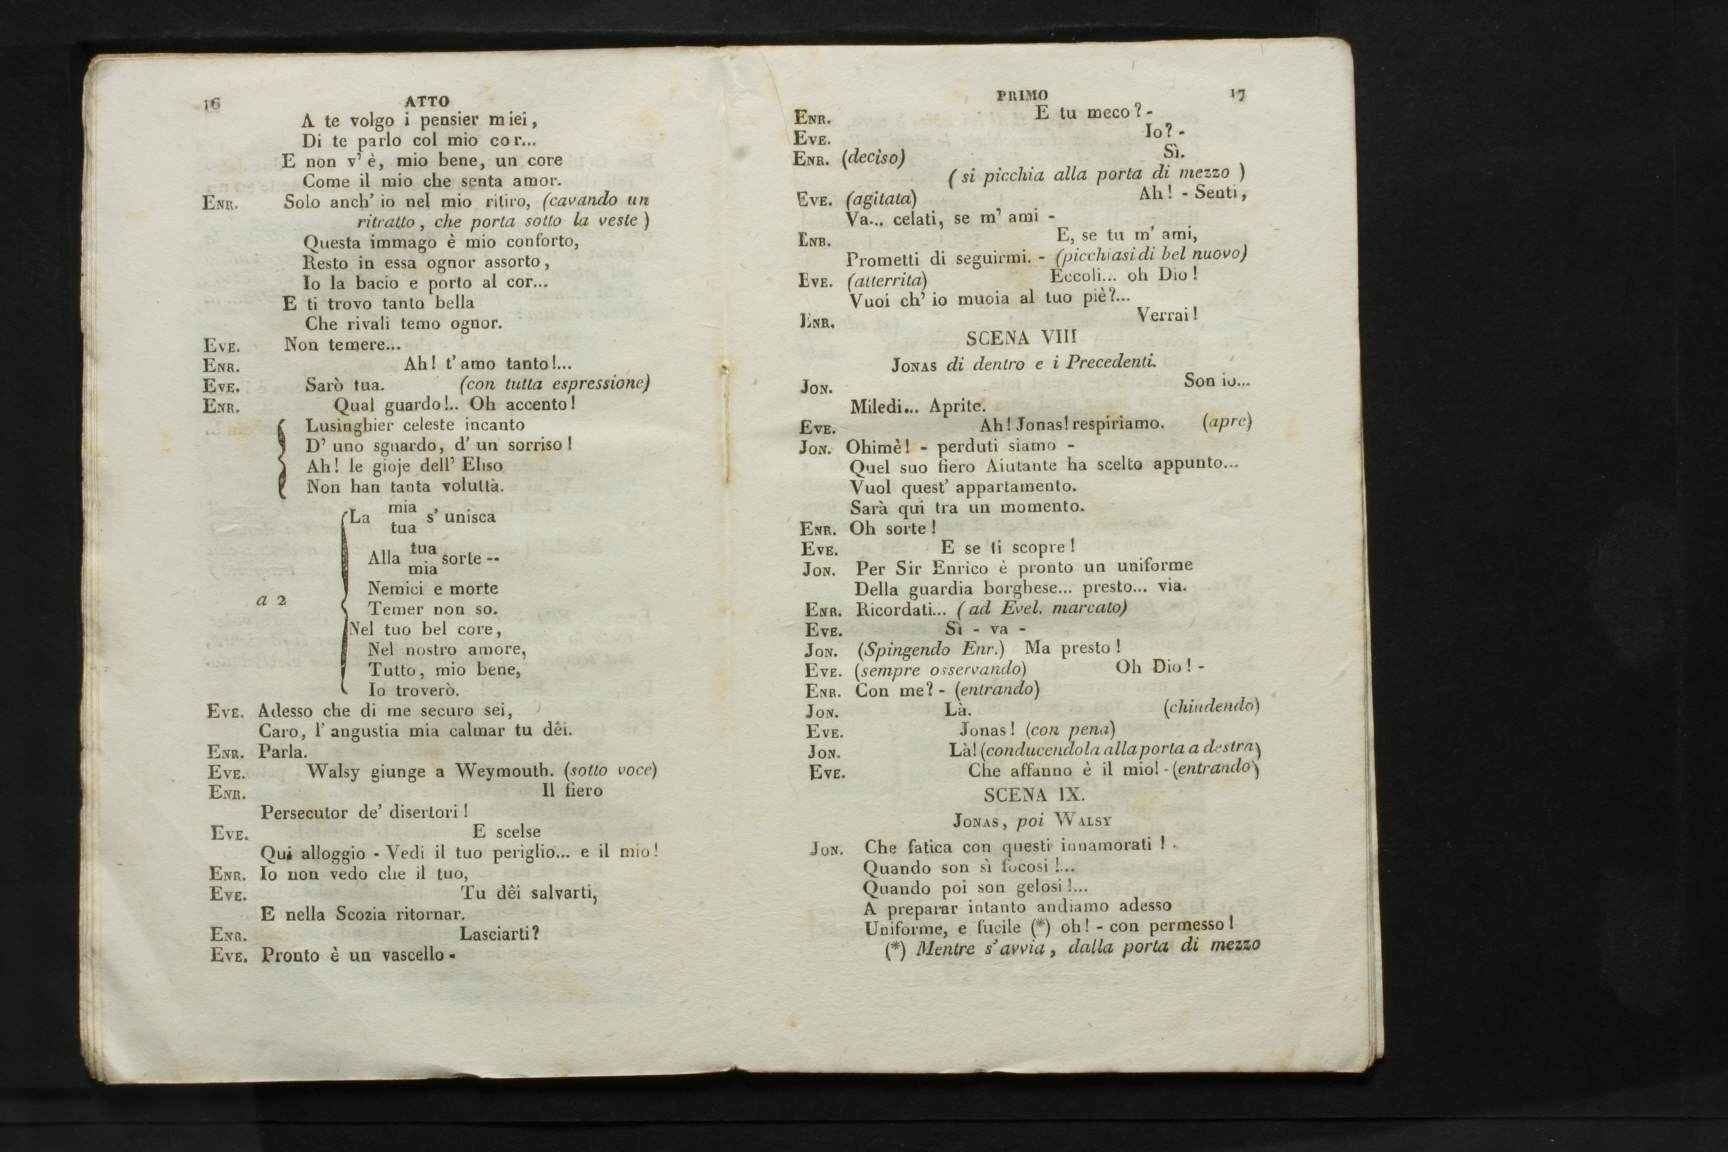 16
ATTO
A te volgo i pensier miei,
Di te parlo col mio cor...
E non v' è, mio bene, un core
Come il mio che senta amor.
ENR. Solo anch' io nel mio ritiro, (cavando un
ritratto, che porta sotto la veste)
Questa immago è mio conforto,
Resto in essa ognor assorto,
Io la bacio e porto al cor...
E ti trovo tanto bella
Che rivali temo ognor.
EVE. Non temere...
ENR. Ah! t' amo tanto!...
EVE. Sarò tua. (con tutta espressione)
ENR. Qual guardo!.. Oh accento!
Lusinghier celeste incanto
D' uno sguardo, d' un sorriso!
Ah! le gioje dell' Eliso
Non han tanta voluttà.
La mia tua s' unisca
Alla tua mia sorte --
Nemici e morte
a 2 Temer non so.
Nel tuo bel core,
Nel nostro amore,
Tutto, mio bene,
Io troverò.
EVE. Adesso che di me securo sei,
Caro, l' angustia mia calmar tu dêi.
ENR. Parla.
EVE. Walsy giunge a Weymouth. (sotto voce)
ENR. Il fiero
Persecutor de' disertori!
EVE. E scelse
Qui alloggio - Vedi il tuo periglio... e il mio!
ENR. Io non vedo che il tuo,
EVE. Tu dêi salvarti,
E nella Scozia ritornar.
ENR. Lasciarti?
EVE. Pronto è un vascello -
PRIMO
17
ENR. E tu meco? -
EVE. Io? -
ENR. (deciso) Sì.
(si picchia alla porta di mezzo)
EVE. (agitata) Ah! - Senti,
Va... celati, se m' ami -
ENR. E, se tu m' ami,
Prometti di seguirmi. - (picchiasi di bel nuovo)
EVE. (atterrita) Eccoli... oh Dio!
Vuoi ch' io muoia al tuo piè?...
ENR. Verrai!
SCENA VIII
JONAS di dentro e i Precedenti.
JON. Son io...
Miledi... Aprite.
EVE. Ah! Jonas! respiriamo. (apre)
JON. Ohimè! - perduti siamo -
Quel suo fiero Aiutante ha scelto appunto...
Vuol quest' appartamento.
Sarà qui tra un momento.
ENR. Oh sorte!
EVE. E se ti scopre!
JON. Per Sir Enrico è pronto un uniforme
Della guardia borghese... presto... via.
ENR. Ricordati... (ad Evel. marcato)
EVE. Sì - va -
JON. (Spingendo Enr.) Ma presto!
EVE. (sempre osservando) Oh Dio! -
ENR. Con me? - (entrando)
JON. Là. (chiudendo)
EVE. Jonas! (con pena)
JON. Là! (conducendola alla porta a destra)
EVE. Che affanno è il mio! - (entrando)
SCENA IX.
JONAS, poi WALSY
JON. Che fatica con questi innamorati!
Quando son sì focosi!...
Quando poi son gelosi!...
A preparar intanto andiamo adesso
Uniforme, e fucile (*) oh! - con permesso!
(*) Mentre s'avvia, dalla porta di mezzo